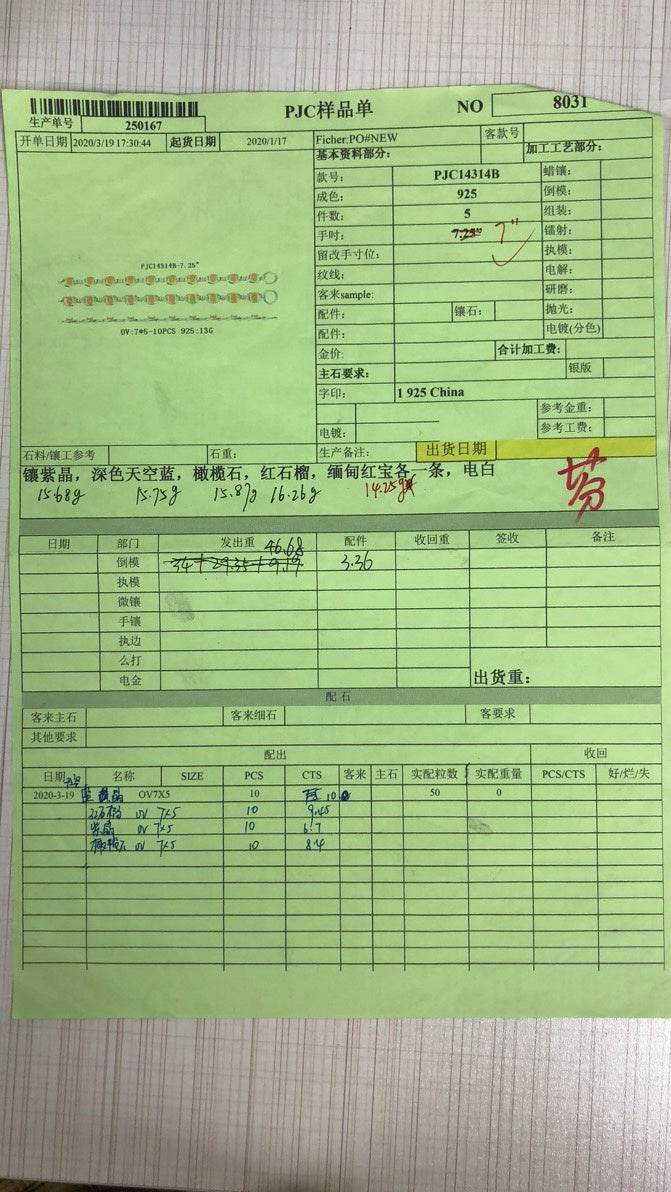 PJC样品单
NO 8031
生产单号 250167
开单日期 2020/3/19 17:30:44 起货日期 2020/1/17 Ficher:PO#NEW 客款号
基本资料部分: 加工工艺部分:
款号: PJC14314B 蜡镶:
成色: 925 倒模:
件数: 5 组装:
手吋: 7.25" 7" 镭射:
留改手寸位: 执模:
纹线: 电解:
客来sample: 研磨:
配件: 镶石: 抛光:
配件: 电镀(分色)
金价: 合计加工费:
主石要求: 银版
字印: 1 925 China
参考金重:
电镀: 参考工费:
PJC14314B-7.25"
OV:7*5-10PCS 925:13G
石料/镶工参考 石重: 生产备注: 出货日期
镶紫晶，深色天空蓝，橄榄石，红石榴，缅甸红宝各一条，电白
15.68g 15.75g 15.87g 16.26g 14.25g
日期 部门 发出重 配件 收回重 签收 备注
46.68
倒模 34+29.35+9.19 3.36
执模
微镶
手镶
执边
么打
电金 出货重:
配石
客来主石 客来细石 客要求
其他要求
配出 收回
日期 名称 SIZE PCS CTS 客来 主石 实配粒数 实配重量 PCS/CTS 好/烂/失
2020-3-19 OV7X5 10 10 50 0
OV 7x5 10 9.45
紫晶 OV 7x5 10 6.7
橄榄石 OV 7x5 10 8.4